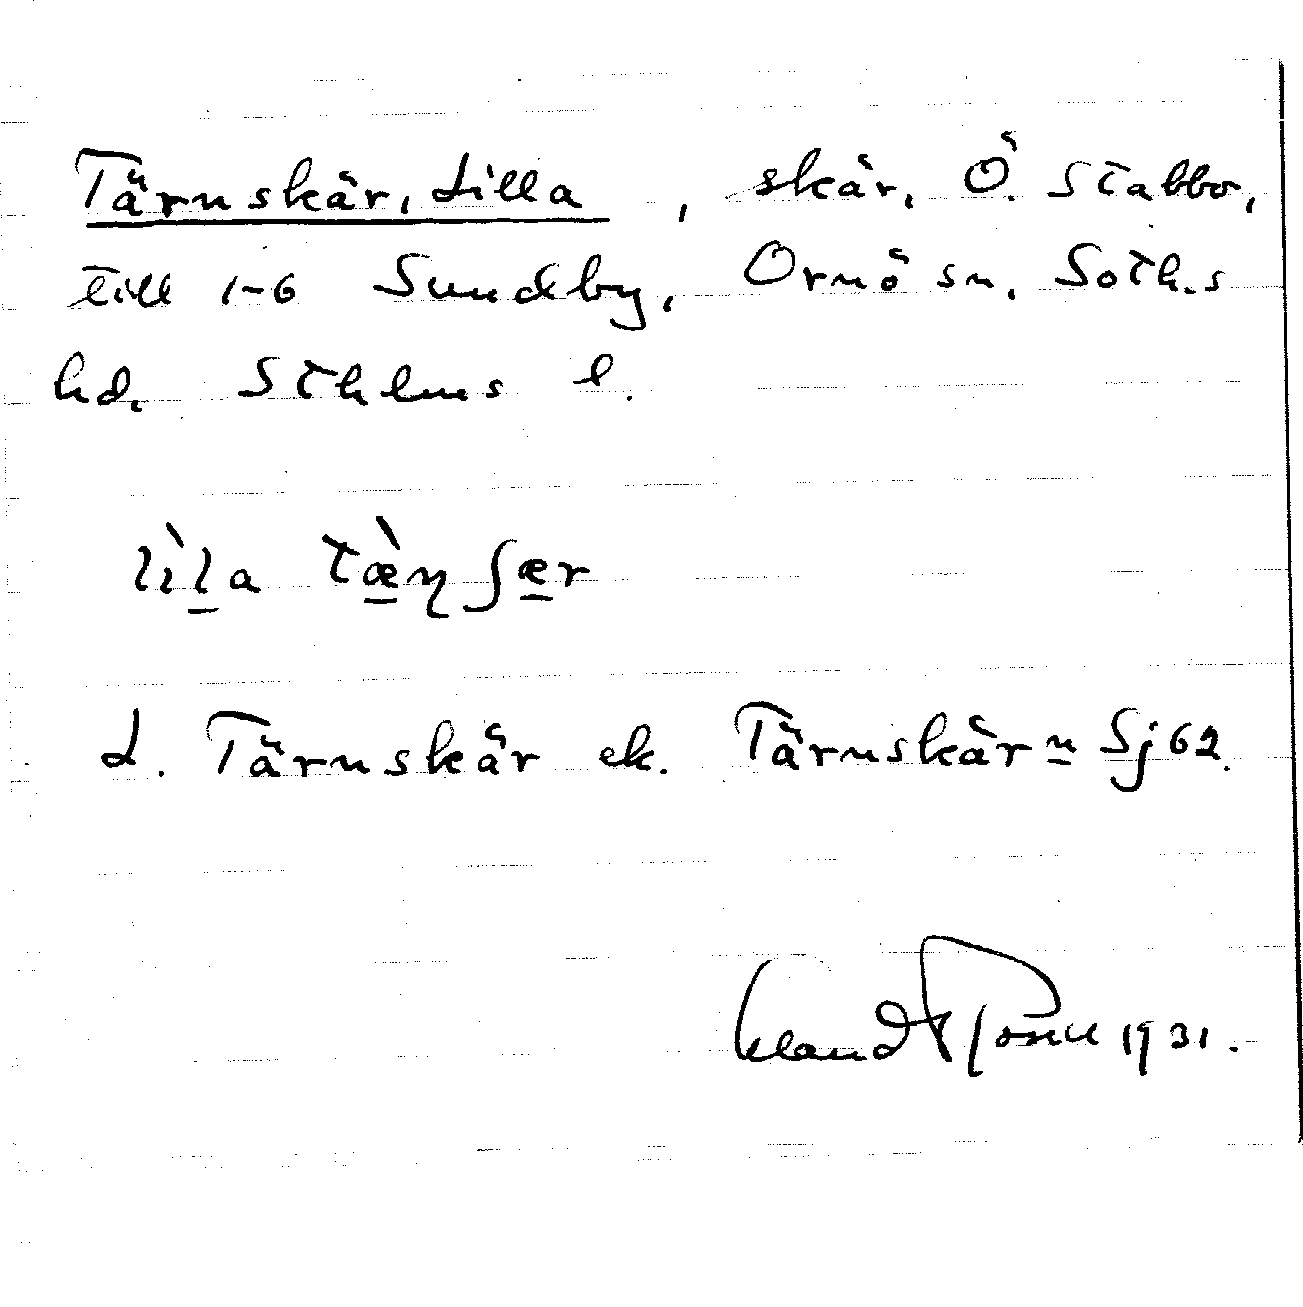 Tärnskär, Lilla, skär, Ö. Stabbo,
till 1-6 Sundby, Ornö sn. Soth.s
hd. Sthlms l.
lìl̲a tæ̲̀ɳʃæ̲r
L. Tärnskär ek. Tärnskärn̲ Sj 62.
1931.